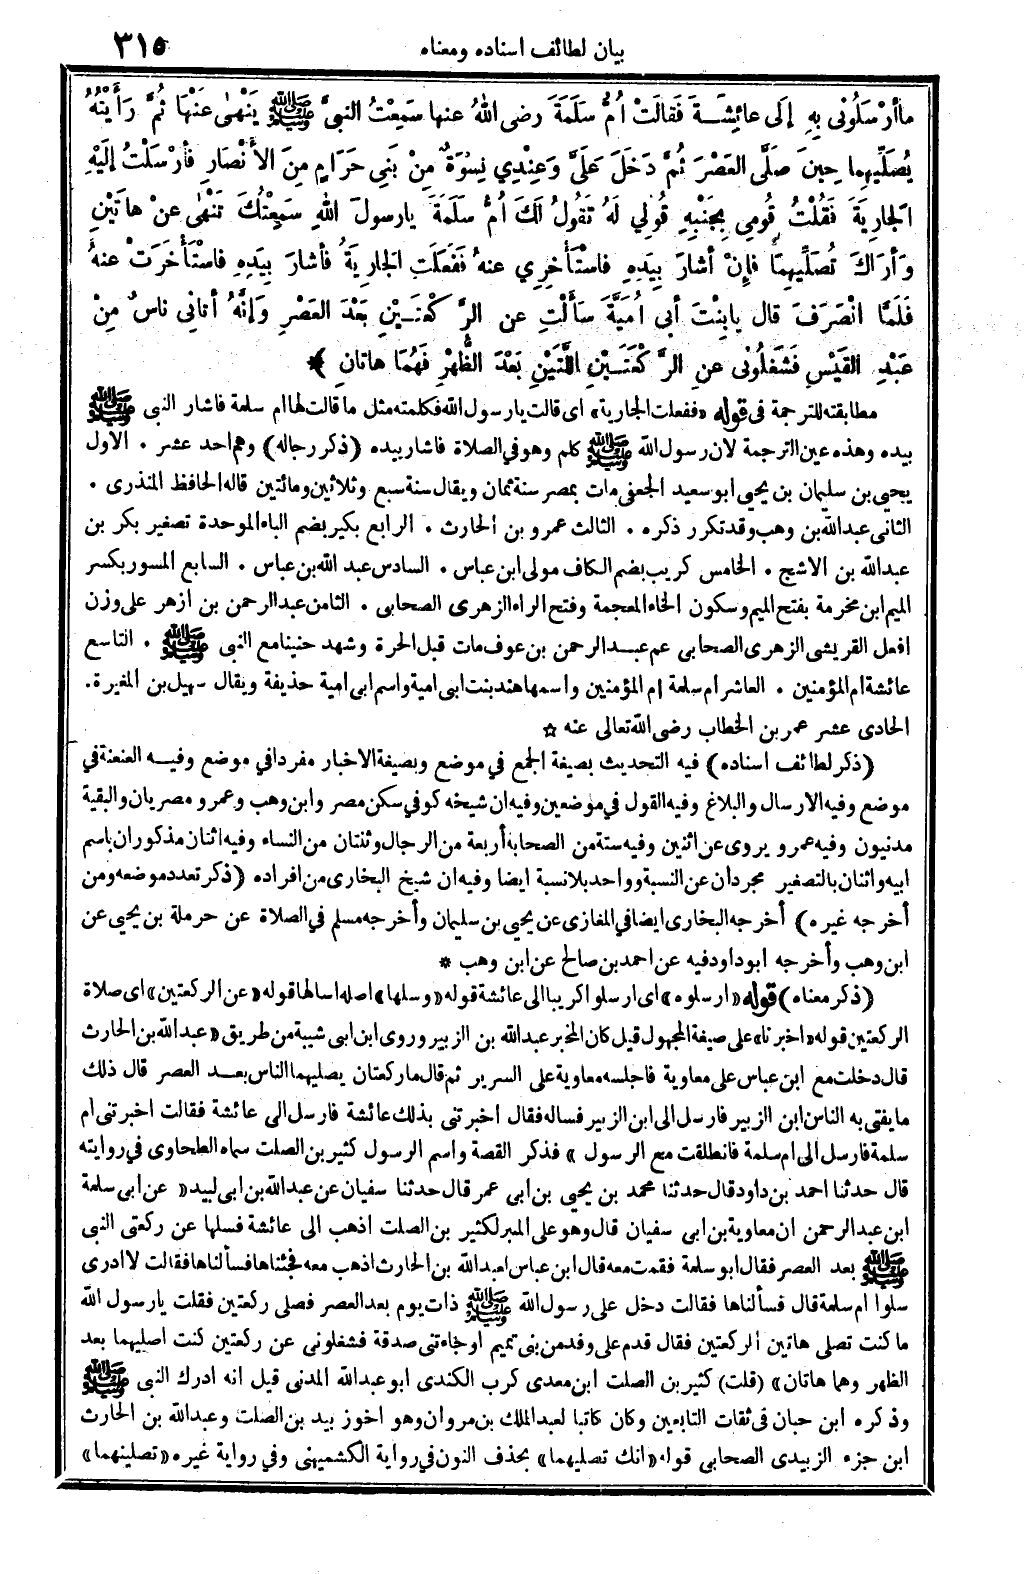 بيان لطائف اسناده ومعناه ٣١٥
ماأرْسَلُونِى بِهِ إلَى عائِشَةَ فَقالَتْ أُمُّ سَلَمَةَ رضى اللهُ عنها سَمِعْتُ النبىَّ ﷺ يَنْهَى عَنْهَا ثُمَّ رَأَيْتُهُ
يُصَلِّيهِما حِينَ صَلَّى العَصْرَ ثُمَّ دَخَلَ عَلَىَّ وَعِنْدِي نِسْوَةٌ مِنْ بَنِى حَرَامٍ مِنَ الأَنْصَارِ فَأرْسَلْتُ إلَيْهِ
الجارِيَةَ فَقُلْتُ قُومِى بِجَنْبِهِ قُولِي لَهُ تَقُولُ لَكَ أُمُّ سَلَمَةَ يارسولَ اللهِ سَمِعْتُكَ تَنْهَى عنْ هاتَيْنِ
وَأراكَ تُصَلِّيهِمَا فإِنْ أشارَ بِيَدِهِ فاسْتَأخِرِي عنهُ فَفَعَلَتِ الجارِيَةُ فأشارَ بِيَدِهِ فاسْتَأخَرَتْ عنهُ
فَلَمَّا انْصَرَفَ قال يابِنْتَ أبى أُمَيَّةَ سَأَلْتِ عنِ الرَّكْعَتَيْنِ بَعْدَ العَصْرِ وَإنَّهُ أتانِى ناسٌ مِنْ
عَبْدِ القَيْسِ فَشَغَلُونِى عنِ الرَّكْعَتَيْنِ اللَّتَيْنِ بَعْدَ الظُّهْرِ فَهُمَا هاتانِ ﴾*
مطابقته للترجمة فى قوله «ففعلت الجارية» اى قالت يارسول الله فكلمته مثل ما قالت لها ام سلمة فاشار النبى ﷺ
بيده وهذه عين الترجمة لان رسول الله ﷺ كلم وهو فى الصلاة فاشار بيده (ذكر رجاله) وهم احد عشر . الاول
يحيى بن سليمان بن يحيى ابو سعيد الجعفى مات بمصر سنة ثمان ويقال سنة سبع وثلاثين ومائتين قاله الحافظ المنذرى .
الثانى عبد الله بن وهب وقد تكرر ذكره . الثالث عمرو بن الحارث . الرابع بكير بضم الباء الموحدة تصغير بكر بن
عبد الله بن الاشج . الخامس كريب بضم الكاف مولى ابن عباس . السادس عبد الله بن عباس . السابع المسور بكسر
الميم ابن مخرمة بفتح الميم وسكون الخاء المعجمة وفتح الراء الزهرى الصحابى . الثامن عبد الرحمن بن ازهر على وزن
افعل القريشى الزهرى الصحابى عم عبد الرحمن بن عوف مات قبل الحرة وشهد حنينا مع النبى ﷺ . التاسع
عائشة ام المؤمنين . العاشر ام سلمة ام المؤمنين واسمها هند بنت ابى امية واسم ابى امية حذيفة ويقال سهيل بن المغيرة.
الحادى عشر عمر بن الخطاب رضى الله تعالى عنه ☆
(ذكر لطائف اسناده) فيه التحديث بصيغة الجمع فى موضع وبصيغة الاخبار مفردا فى موضع وفيه العنعنة فى
موضع وفيه الارسال والبلاغ وفيه القول فى موضعين وفيه ان شيخه كوفى سكن مصر وابن وهب وعمرو مصريان والبقية
مدنيون وفيه عمرو يروى عن اثنين وفيه ستة من الصحابة أربعة من الرجال وثنتان من النساء وفيه اثنان مذكوران باسم
ابيه واثنان بالتصغير مجردان عن النسبة وواحد بلا نسبة ايضا وفيه ان شيخ البخارى من افراده (ذكر تعدد موضعه ومن
أخرجه غيره) أخرجه البخارى ايضا فى المغازى عن يحيى بن سليمان وأخرجه مسلم فى الصلاة عن حرملة بن يحيى عن
ابن وهب وأخرجه ابو داود فيه عن احمد بن صالح عن ابن وهب *
(ذكر معناه) قوله «ارسلوه» اى ارسلوا كريبا الى عائشة قوله «وسلها» اصله اسالها قوله «عن الركعتين» اى صلاة
الركعتين قوله «اخبرنا» على صيغة المجهول قيل كان المخبر عبد الله بن الزبير وروى ابن ابى شيبة من طريق «عبد الله بن الحارث
قال دخلت مع ابن عباس على معاوية فاجلسه معاوية على السرير ثم قال ما ركعتان يصليهما الناس بعد العصر قال ذلك
ما يفتى به الناس ابن الزبير فارسل الى ابن الزبير فساله فقال اخبرتنى بذلك عائشة فارسل الى عائشة فقالت اخبرتنى ام
سلمة فارسل الى ام سلمة فانطلقت مع الرسول » فذكر القصة واسم الرسول كثير بن الصلت سماه الطحاوى فى روايته
قال حدثنا احمد بن داود قال حدثنا محمد بن يحيى بن ابى عمر قال حدثنا سفيان عن عبد الله بن ابى لبيد «عن ابى سلمة
ابن عبد الرحمن ان معاوية بن ابى سفيان قال وهو على المبر لكثير بن الصلت اذهب الى عائشة فسلها عن ركعتى النبى
ﷺ بعد العصر فقال ابو سلمة فقمت معه قال ابن عباس لعبد الله بن الحارث اذهب معه فجئناها فسألناها فقالت لا ادرى
سلوا ام سلمة قال فسألناها فقالت دخل على رسول الله ﷺ ذات يوم بعد العصر فصلى ركعتين فقلت يارسول الله
ما كنت تصلى هاتين الركعتين فقال قدم على وفد من بنى تميم اوجاءتنى صدقة فشغلونى عن ركعتين كنت اصليهما بعد
الظهر وهما هاتان» (قلت) كثير بن الصلت ابن معدى كرب الكندى ابو عبد الله المدنى قيل انه ادرك النبى ﷺ
وذكره ابن حبان فى ثقات التابعين وكان كاتبا لعبد الملك بن مروان وهو اخو زبيد بن الصلت وعبد الله بن الحارث
ابن جزء الزبيدى الصحابى قوله «انك تصليهما» بحذف النون فى رواية الكشميهنى وفى رواية غيره «تصلينهما»